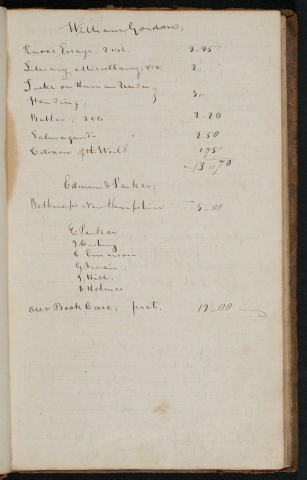 William Gordon;
Knox's Essays, 2 vol. 2.25
Literary Miscellany, 2
Locke on Human Under } 3
standing;
Babler, 2 vols 2.20
Salmagundi 2.50
of the World 1.75
13.70
Edmund Parker,
Belknap's New Hampshire 5.00
E. Parker
E. Emerson
G.
Hill
Holmes
our Book Case, 12.00